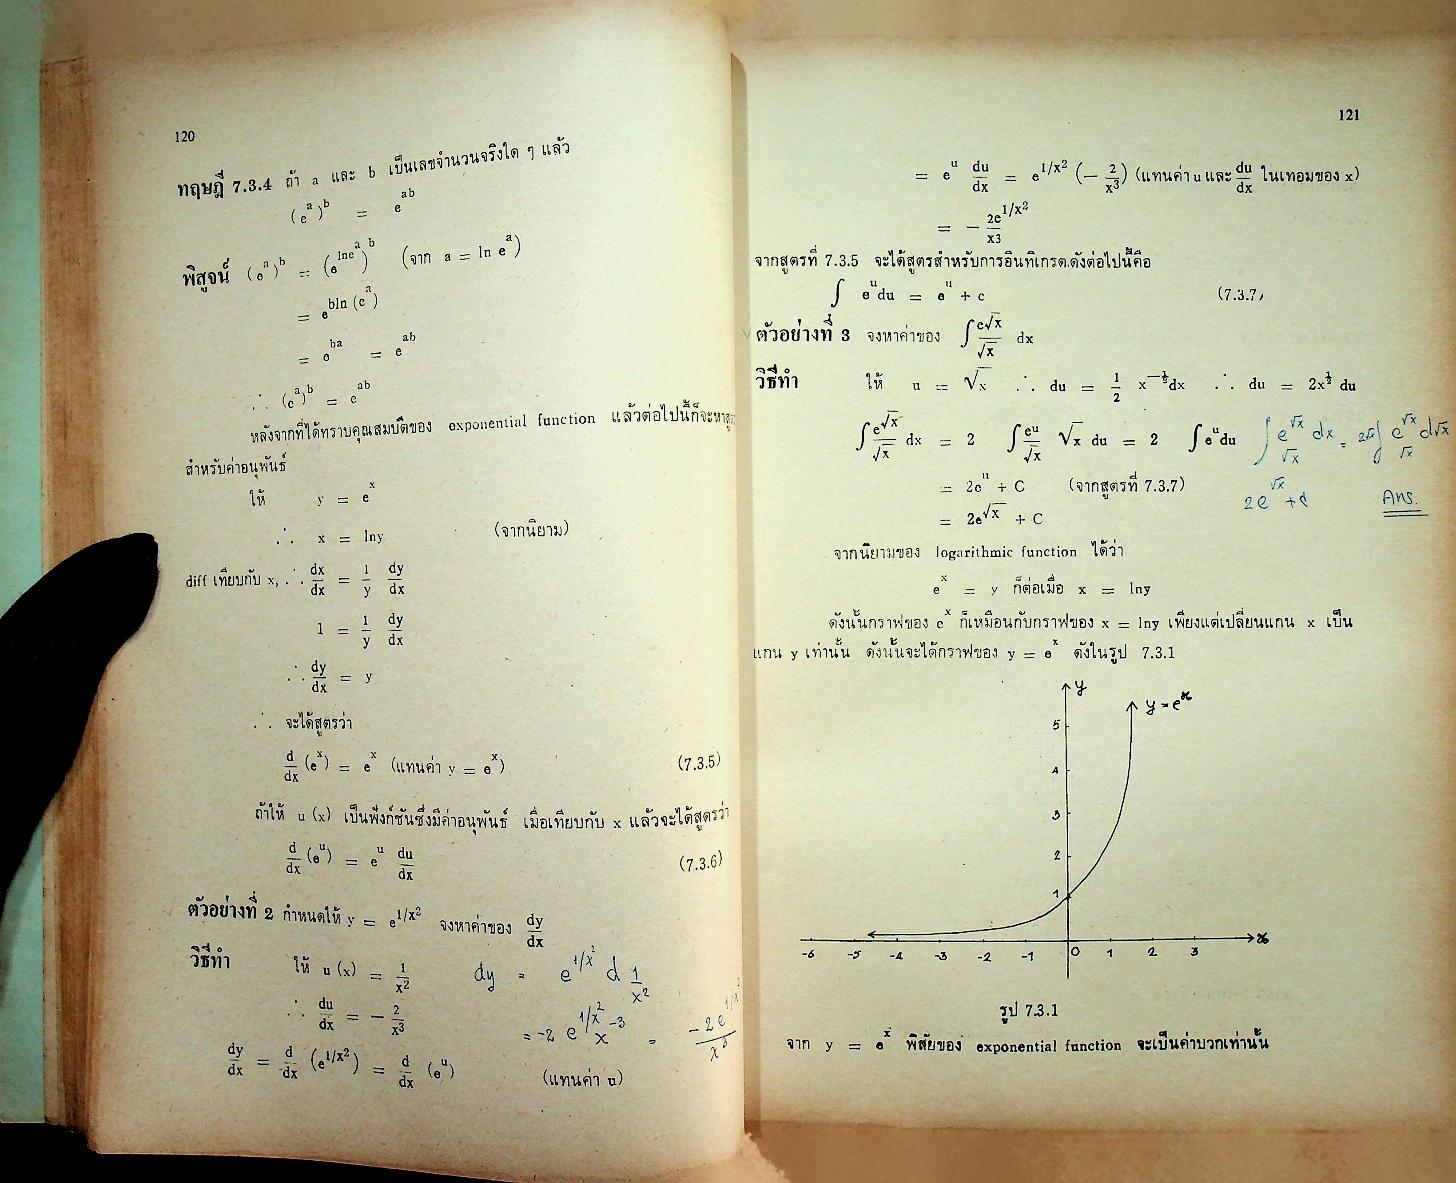 120
ทฤษฎี 7.3.4 ถ้า a และ b เป็นเลขจำนวนจริงใด ๆ แล้ว
(e^a)^b = e^ab
พิสูจน์ (e^a)^b = (e^lne^a)^b (จาก a = ln e^a)
= e^bln (e^a)
= e^ba = e^ab
∴ (e^a)^b = e^ab
หลังจากที่ได้ทราบคุณสมบัติของ exponential function แล้วต่อไปนี้ก็จะหาสูตร
สำหรับค่าอนุพันธ์
ให้ y = e^x
∴ x = lny (จากนิยาม)
diff เทียบกับ x, ∴ dx/dx = 1/y dy/dx
1 = 1/y dy/dx
∴ dy/dx = y
∴ จะได้สูตรว่า
d/dx (e^x) = e^x (แทนค่า y = e^x) (7.3.5)
ถ้าให้ u (x) เป็นฟังก์ชันซึ่งมีค่าอนุพันธ์ เมื่อเทียบกับ x แล้วจะได้สูตรว่า
d/dx (e^u) = e^u du/dx (7.3.6)
ตัวอย่างที่ 2 กำหนดให้ y = e^1/x² จงหาค่าของ dy/dx
วิธีทำ ให้ u (x) = 1/x² dy = e^1/x² d 1/x²
∴ du/dx = − 2/x3 = -2 e^1/x² x^-3 = -2e^1/x²/x³
dy/dx = d/dx (e^1/x2) = d/dx (e^u) (แทนค่า u)
121
= e^u du/dx = e^1/x² (− 2/x³) (แทนค่า u และ du/dx ในเทอมของ x)
= − 2e^1/x²/x3
จากสูตรที่ 7.3.5 จะได้สูตรสำหรับการอินทิเกรตดังต่อไปนี้คือ
∫ e^u du = e^u + c (7.3.7)
ตัวอย่างที่ 3 จงหาค่าของ ∫ e√x/√x dx
วิธีทำ ให้ u = √x ∴ du = 1/2 x^−½ dx ∴ du = 2x^½ du
∫ e^√x/√x dx = 2 ∫ eu/√x √x du = 2 ∫ e^u du ∫ e^√x/√x dx = 2√x ∫ e^√x/√x d√x
= 2e^u + C (จากสูตรที่ 7.3.7) 2e^√x + c Ans.
= 2e^√x + C
จากนิยามของ logarithmic function ได้ว่า
e^x = y ก็ต่อเมื่อ x = lny
ดังนั้นกราฟของ e^x ก็เหมือนกับกราฟของ x = lny เพียงแต่เปลี่ยนแกน x เป็น
แกน y เท่านั้น ดังนั้นจะได้กราฟของ y = e^x ดังในรูป 7.3.1
y
y = e^x
5
4
3
2
1
-6 -5 -4 -3 -2 -1 0 1 2 3 x
รูป 7.3.1
จาก y = e^x พิสัยของ exponential function จะเป็นค่าบวกเท่านั้น